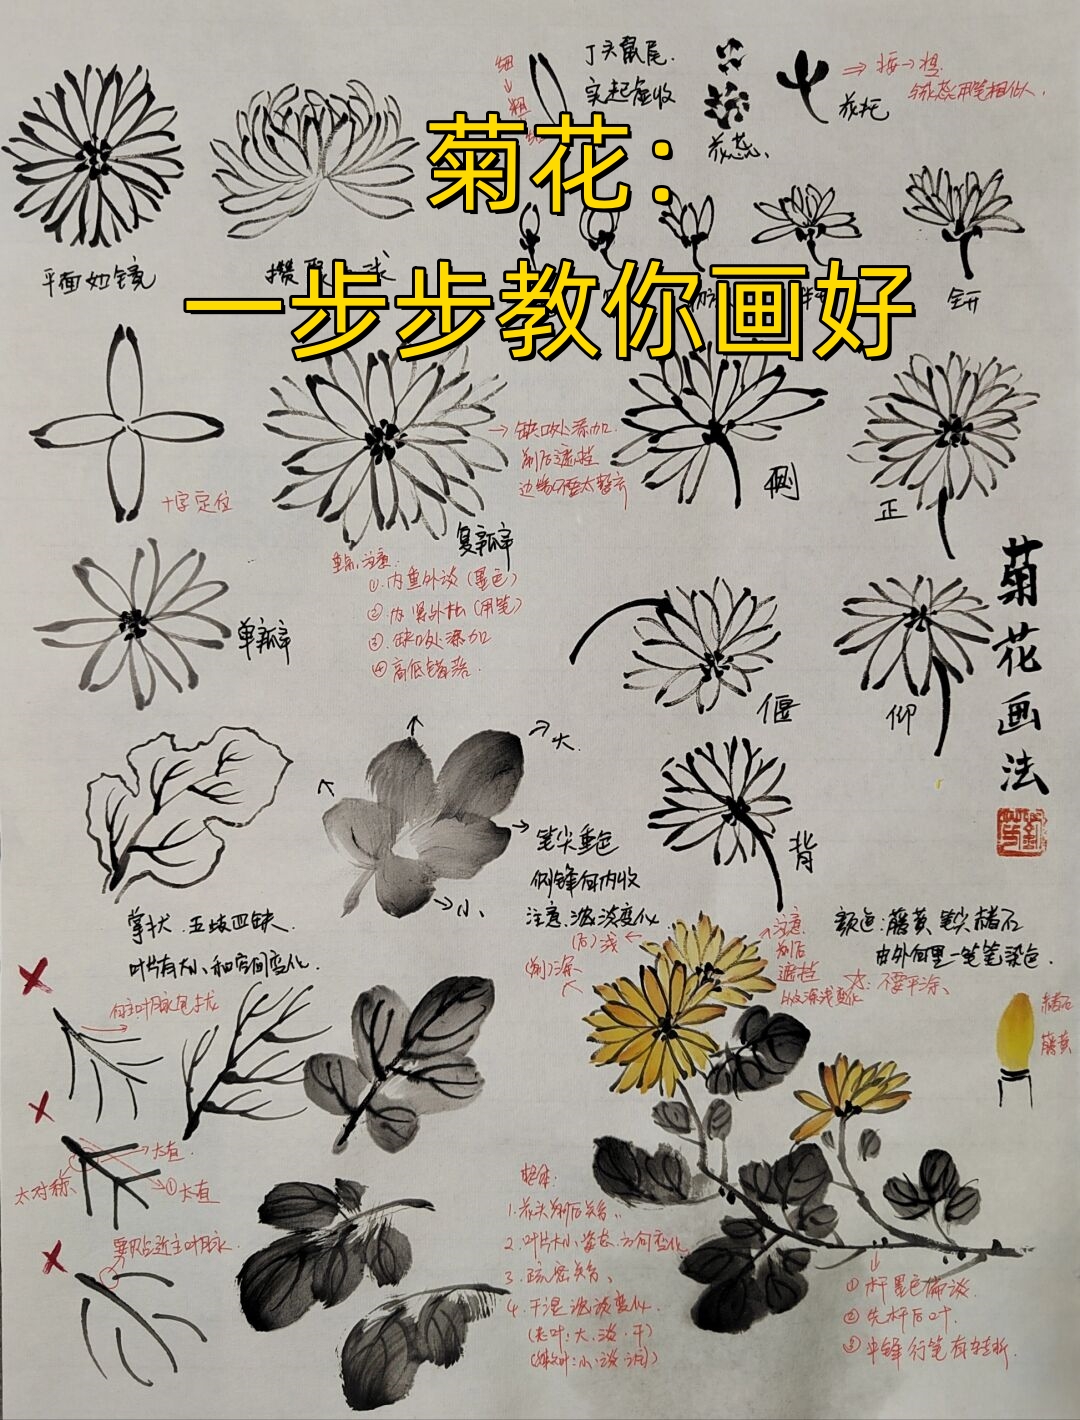 菊花：
一步步教你画好
丁头鼠尾.
实起虚收
细
粗
花蕊、
花托
按→提
平面如镜
全开
十字定位
缺口处添加.
前后遮挡
复瓣
侧
正
重点注意:
①.内重外淡（墨色）
②.内紧外松（用笔）
③.缺口处添加
④高低错落.
单瓣
偃
仰
背
菊花画法
大.
小、
笔尖重色
侧锋向内收
注意.浓淡变化
掌状.五歧四缺.
叶片有大小和空间变化.
颜色:藤黄,笔尖赭石
由外向里一笔笔染色.
不要平涂、
注意
前后
遮挡
(后)浅
(前)深
赭石
藤黄
太直.
太对称、
①太直
整体:
1.花头前后关系、
2.叶片大小、姿态、方向变化
3.疏密关系、
4.干湿浓淡变化.
(老叶:大.淡.干)
①杆墨色偏淡.
②先杆后叶.
③中锋行笔有转折.